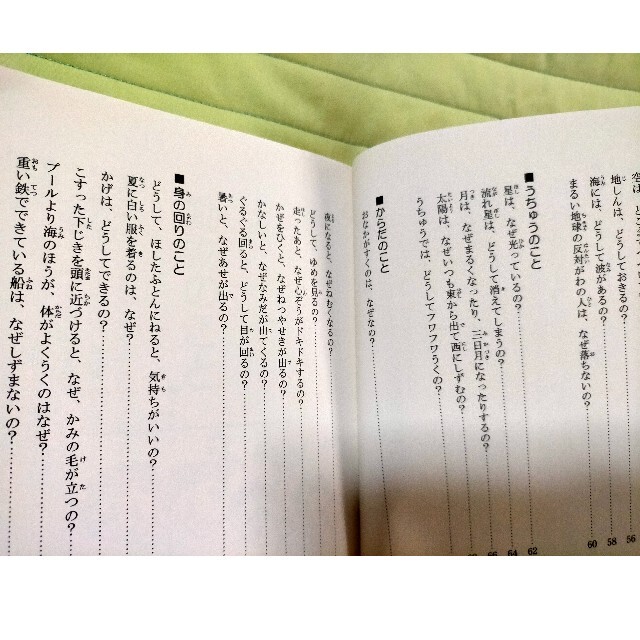 地しんは、どうしておきるの？ 56
海には、どうして波があるの？ 58
まるい地球の反対がわの人は、なぜ落ちないの？ 60
■うちゅうのこと
星は、なぜ光っているの？ 62
流れ星は、どうして消えてしまうの？ 64
月は、なぜまるくなったり、三日月になったりするの？ 66
太陽は、なぜいつも東から出て西にしずむの？
うちゅうでは、どうしてフワフワうくの？
■からだのこと
おなかがすくのは、なぜなの？
夜になると、なぜねむくなるの？
どうして、ゆめを見るの？
走ったあと、なぜ心ぞうがドキドキするの？
かぜをひくと、なぜねつやせきが出るの？
かなしいと、なぜなみだが出てくるの？
ぐるぐる回ると、どうして目が回るの？
暑いと、なぜあせが出るの？
■身の回りのこと
どうして、ほしたふとんにねると、気持ちがいいの？
夏に白い服を着るのは、なぜ？
かげは、どうしてできるの？
こすった下じきを頭に近づけると、なぜ、かみの毛が立つの？
プールより海のほうが、体がよくうくのはなぜ？
重い鉄でできている船は、なぜしずまないの？